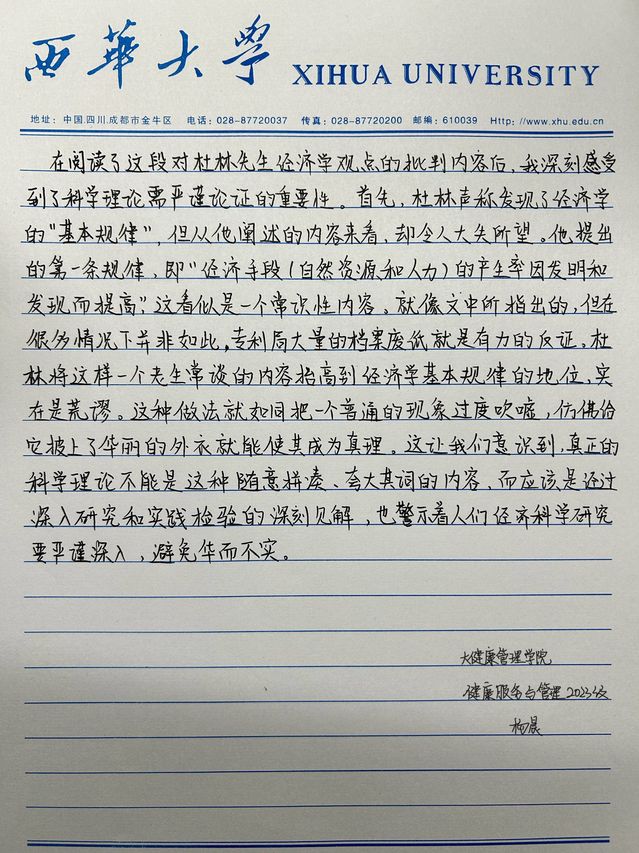 西華大學 XIHUA UNIVERSITY
地址：中国.四川.成都市金牛区 电话：028-87720037 传真：028-87720200 邮编：610039 Http: //www.xhu.edu.cn
在阅读了这段对杜林先生经济学观点的批判内容后，我深刻感受
到了科学理论需严谨论证的重要性。首先，杜林声称发现了经济学
的“基本规律”，但从他阐述的内容来看，却令人大失所望。他提出
的第一条规律，即“经济手段（自然资源和人力）的产生率因发明和
发现而提高”，这看似是一个常识性内容。就像文中所指出的，但在
很多情况下并非如此，专利局大量的档案废纸就是有力的反证。杜
林将这样一个老生常谈的内容抬高到经济学基本规律的地位，实
在是荒谬。这种做法就如同把一个普通的现象过度吹嘘，仿佛给
它披上了华丽的外衣就能使其成为真理。这让我们意识到，真正的
科学理论不能是这种随意拼凑、夸大其词的内容，而应该是经过
深入研究和实践检验的深刻见解，也警示着人们经济科学研究
要严谨深入，避免华而不实。
大健康管理学院
健康服务与管理2023级
杨晨